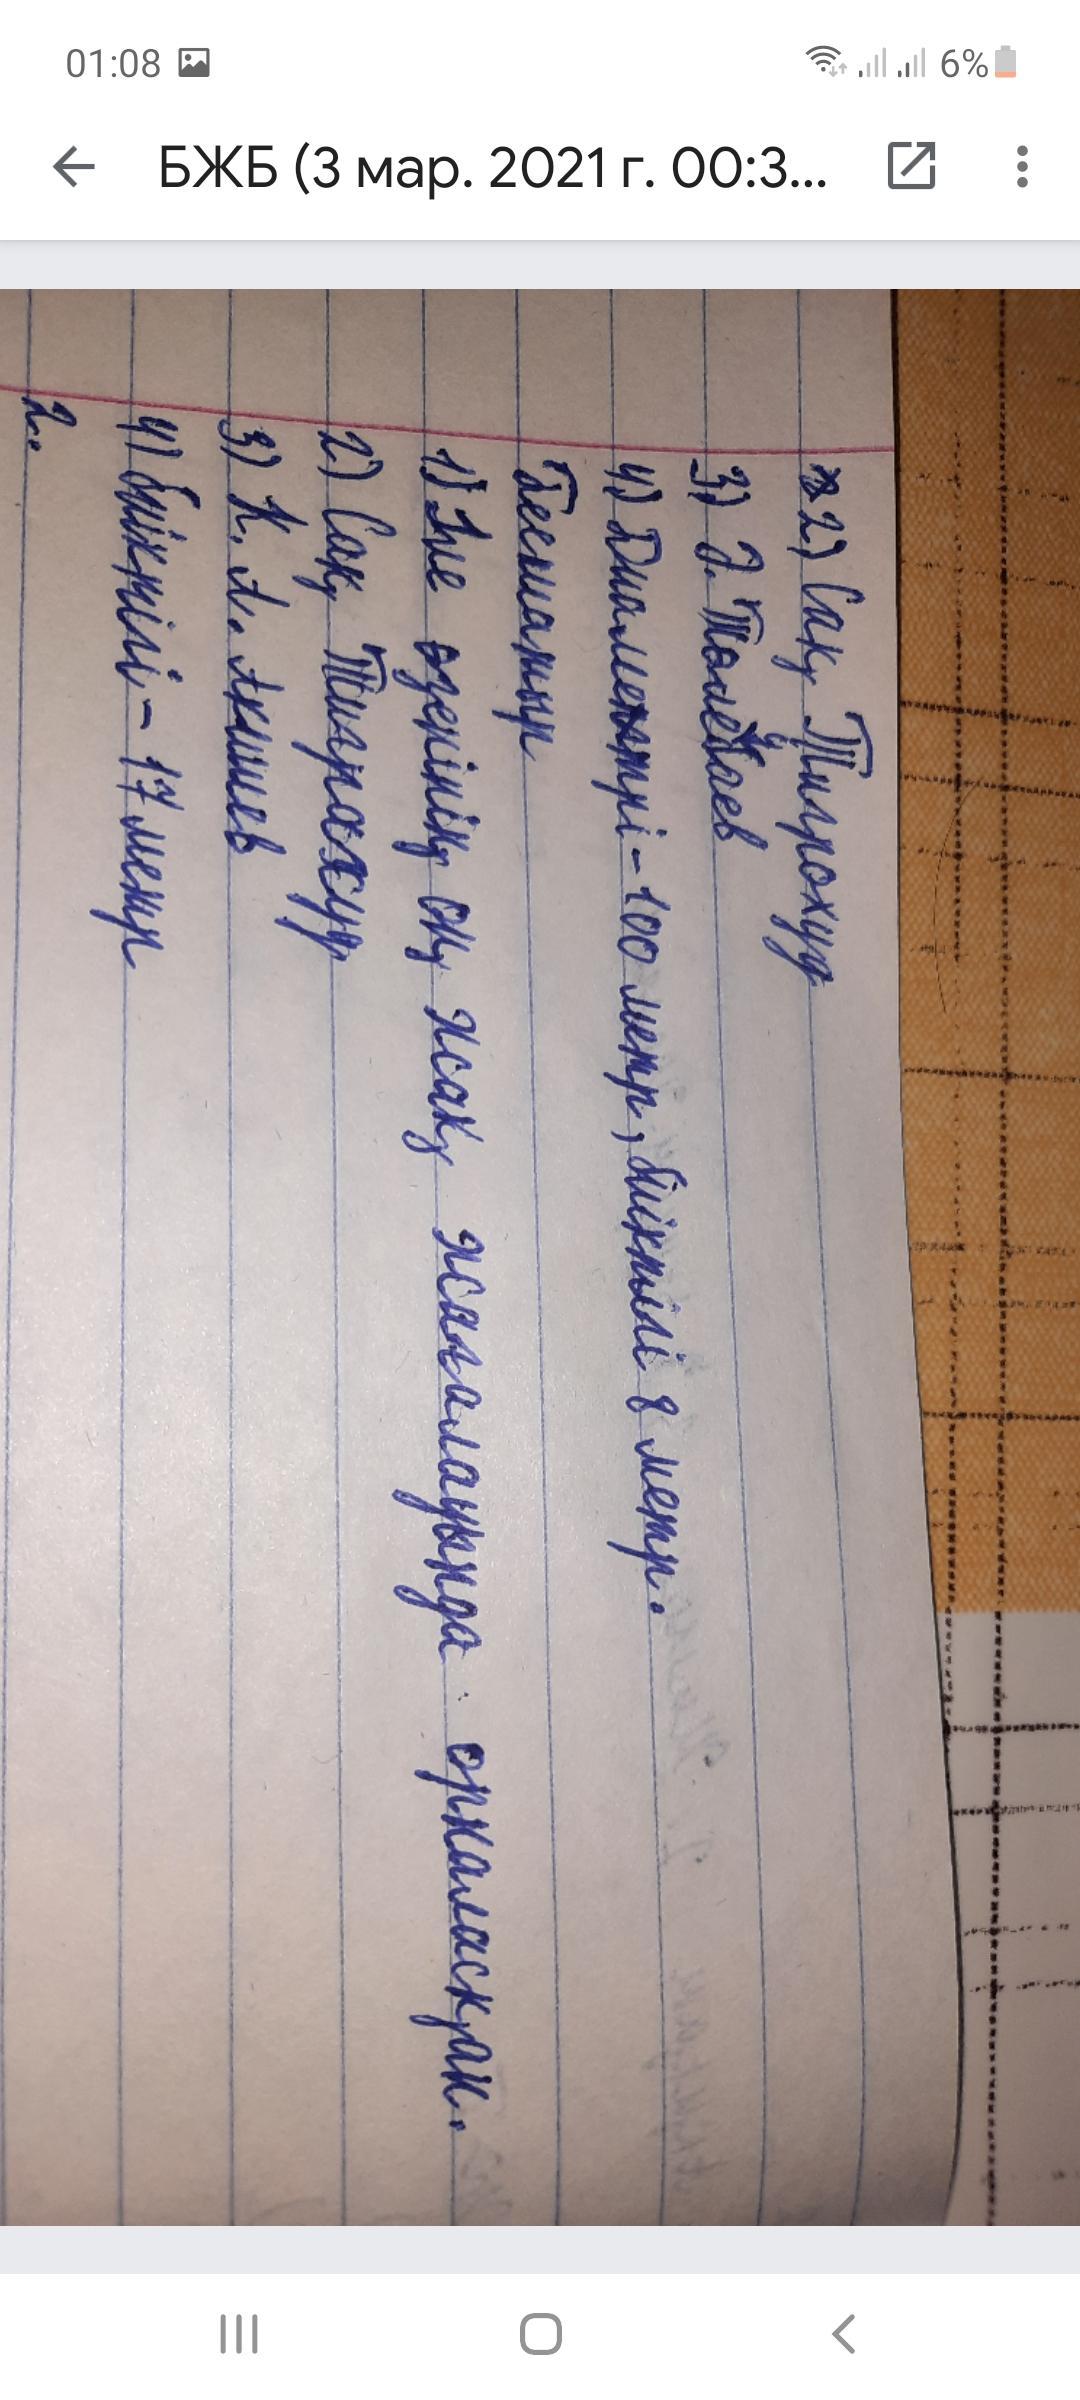 01:08
6%
БЖБ (3 мар. 2021 г. 00:3...
2) Сақ Тиграхуд
3) Ә. Төлеубаев
4) Диаметрі - 100 метр, биіктілі 8 метр.
Бесшатыр
1) Іле өзенінің оң жақ жағалауында орналасқан.
2) Сақ Тиграхуд
3) К. А. Акишев
4) Биіктілі - 17 метр
2.